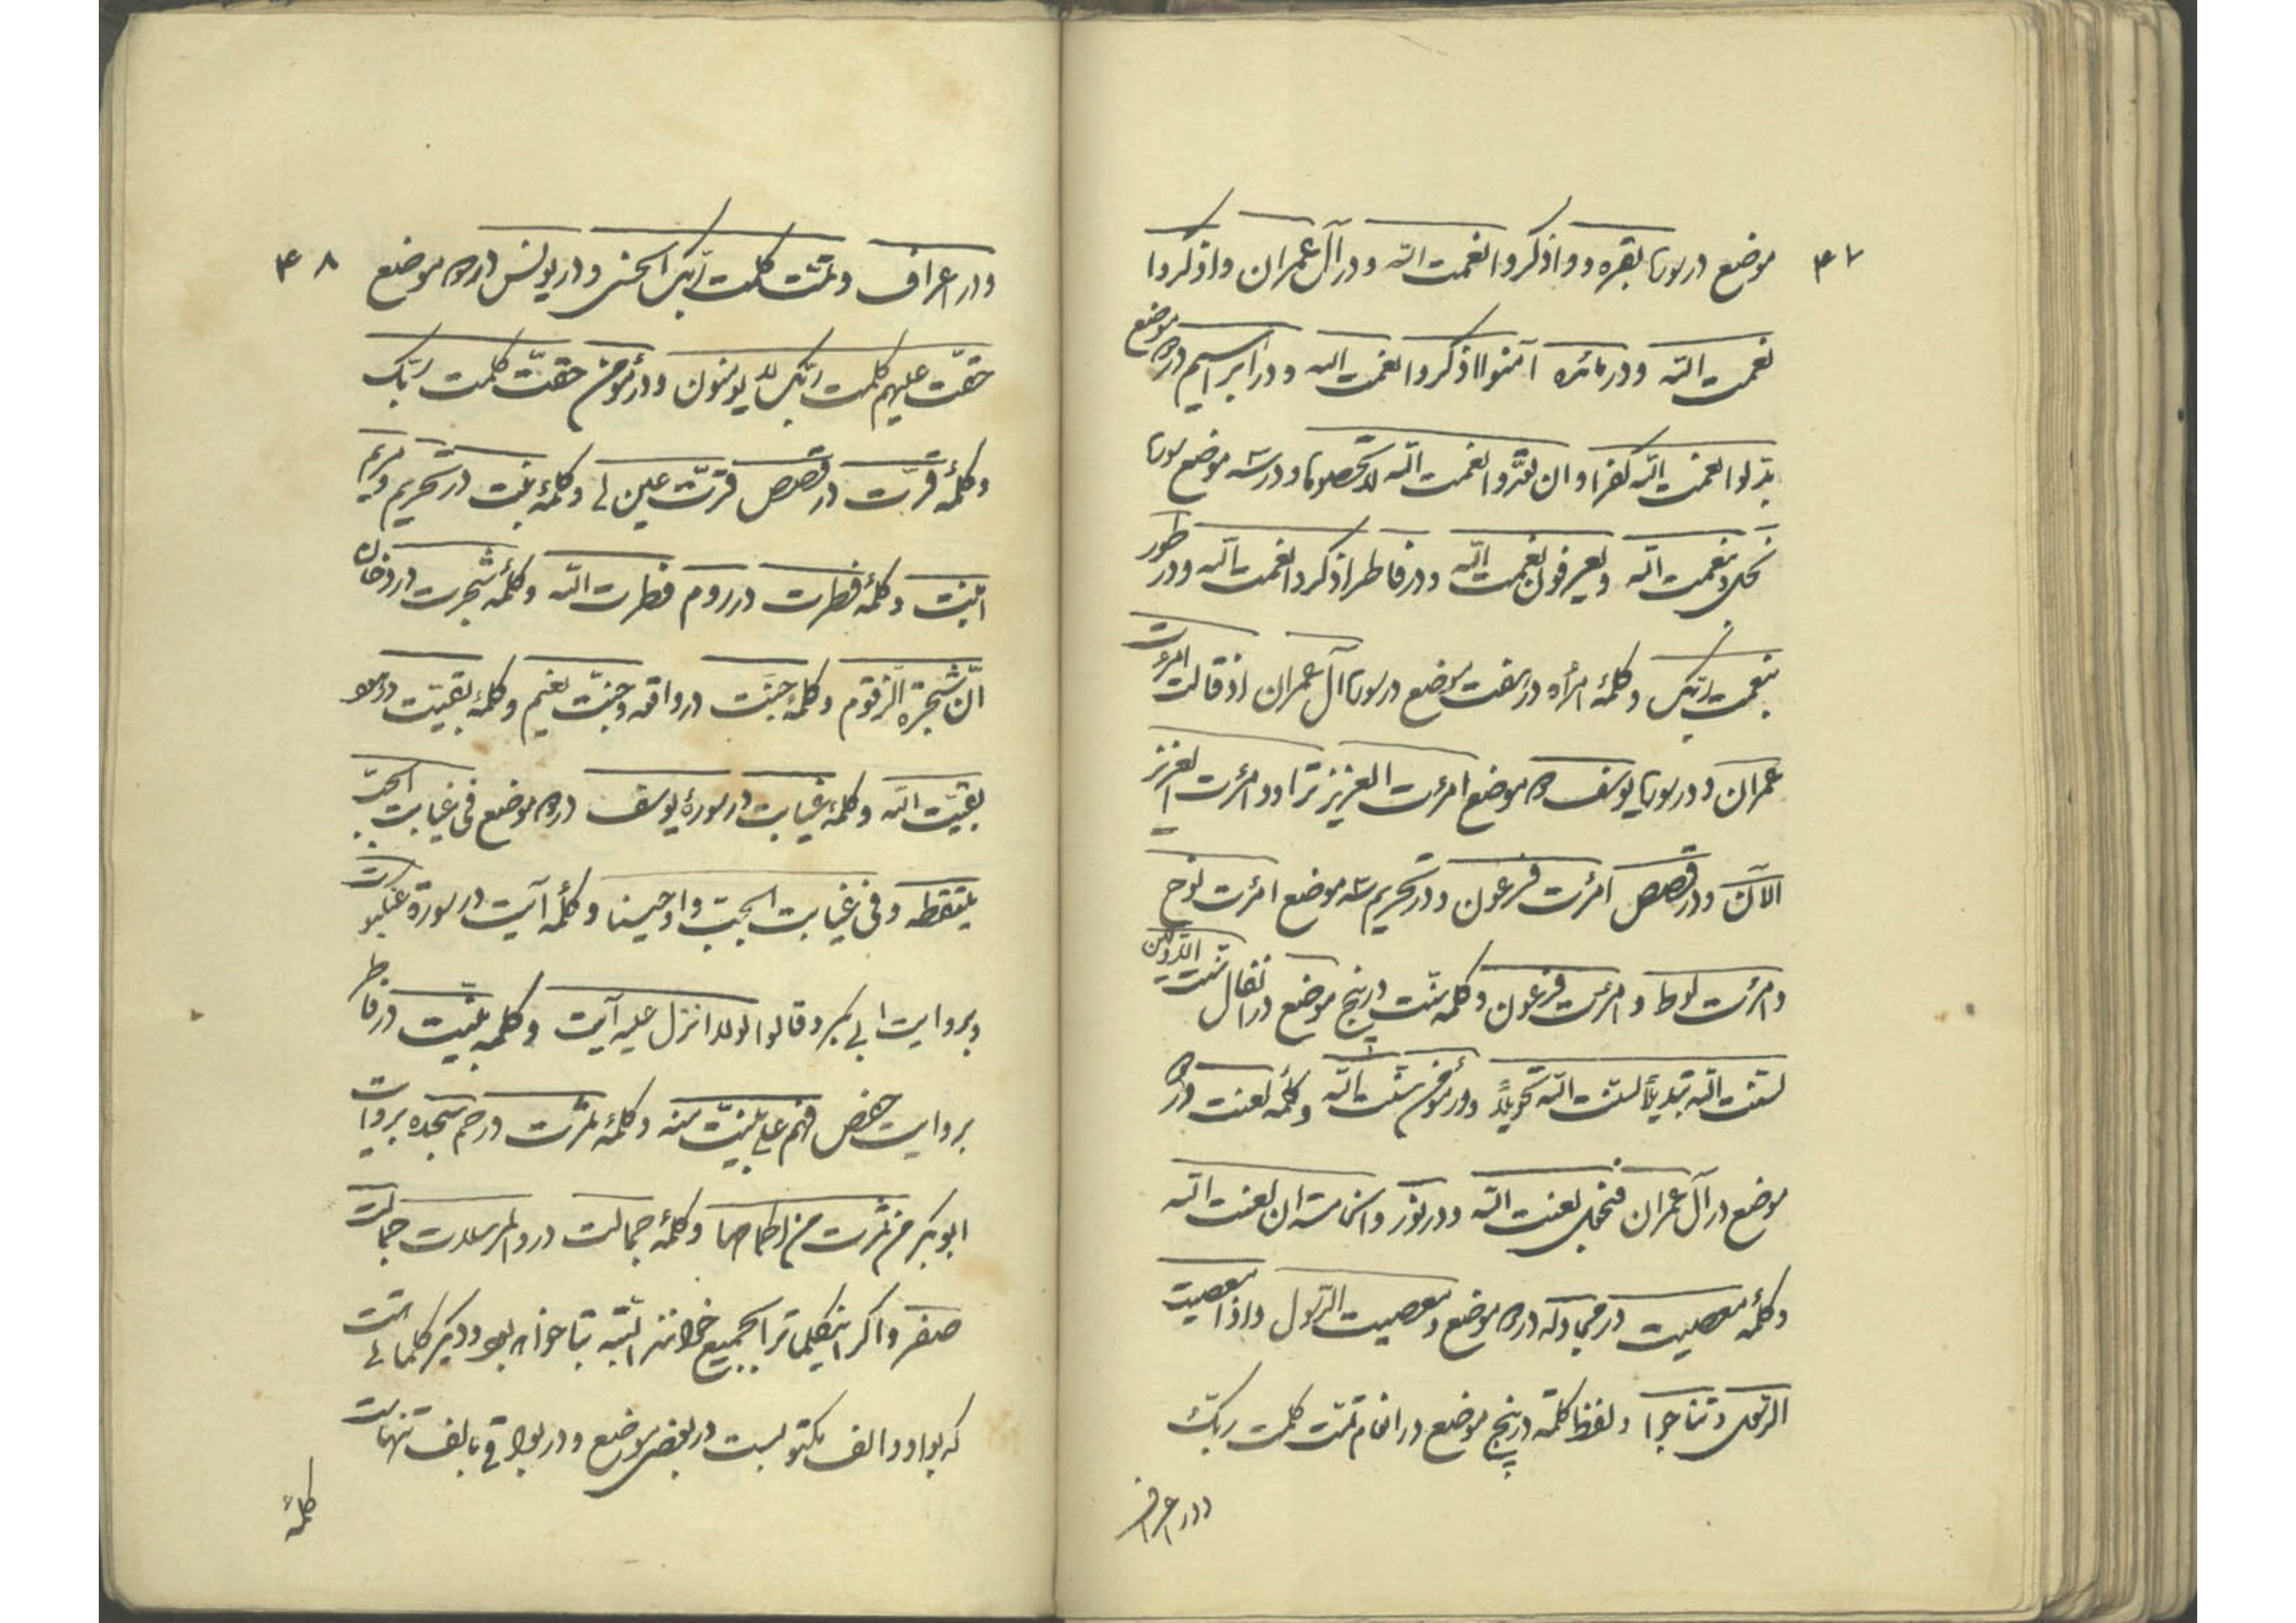 ۴۷
موضع در سورۀ بقره و واذکروا نعمت الله و در آل عمران واذکروا
نعمت الله و در مائده آمنوا اذکروا نعمت الله و در ابراهیم در دو موضع
بدّلوا نعمت الله کفرا و ان تعدّوا نعمت الله لا تحصوها و در سه موضع سورۀ
نحل و بنعمت الله و یعرفون نعمت الله و در فاطر اذکروا نعمت الله و در طور
بنعمت ربّک و کلمۀ امرأه در هفت موضع در سورۀ آل عمران اذ قالت امرئت
عمران و در سورۀ یوسف دو موضع امرئت العزیز تراود امرئت العزیز
الآن و در قصص امرئت فرعون و در تحریم سه موضع امرئت نوح
و امرئت لوط و امرئت فرعون و کلمه سنّت در پنج موضع در انفال سنّت الاوّلین
لسنّت الله تبدیلاً لسنّت الله تحویلاً و در مؤمن سنّت الله و کلمۀ لعنت در دو
موضع در آل عمران فنجعل لعنت الله و در نور والخامسة ان لعنت الله
و کلمۀ معصیت در مجادله در دو موضع و معصیت الرّسول و اذا معصیت
الرّسول و تناجوا و لفظ کلمة در پنج موضع در انعام تمّت کلمت ربّک
و در اعراف
۴۸
و در اعراف و تمّت کلمت ربّک الحسنی و در یونس در دو موضع
حقّت علیهم کلمت ربّک لا یؤمنون و در مؤمن حقّت کلمت ربّک
و کلمۀ قرّت در قصص قرّت عین لی و کلمۀ بنت در تحریم و مریم
ابنت و کلمۀ فطرت در روم فطرت الله و کلمۀ شجرت در دخان
انّ شجرة الزّقّوم و کلمۀ جنّت در واقعه و جنّت نعیم و کلمۀ بقیّت در هود
بقیّت الله و کلمۀ غیابت در سورۀ یوسف در دو موضع فی غیابت الجبّ
یلتقطه و فی غیابت الجبّ و اوحینا و کلمۀ آیت در سورۀ عنکبوت
و بروایت ابی بکر و قالوا لولا انزل علیه آیت و کلمه بیّنت در فاطر
بروایت حفص فهم علی بیّنت منه و کلمۀ ثمرت در حم سجده بروایت
ابو بکر من ثمرت من اکمامها و کلمۀ جمالت در والمرسلات جمالت
صفر و اگر این کلمات را بجمیع خوانند البتّه بتا خواهد بود و دیگر کلماتی است
که بواو و الف مکتوبست در بعضی مواضع و در بواقی بالف تنهاست
کلمۀ